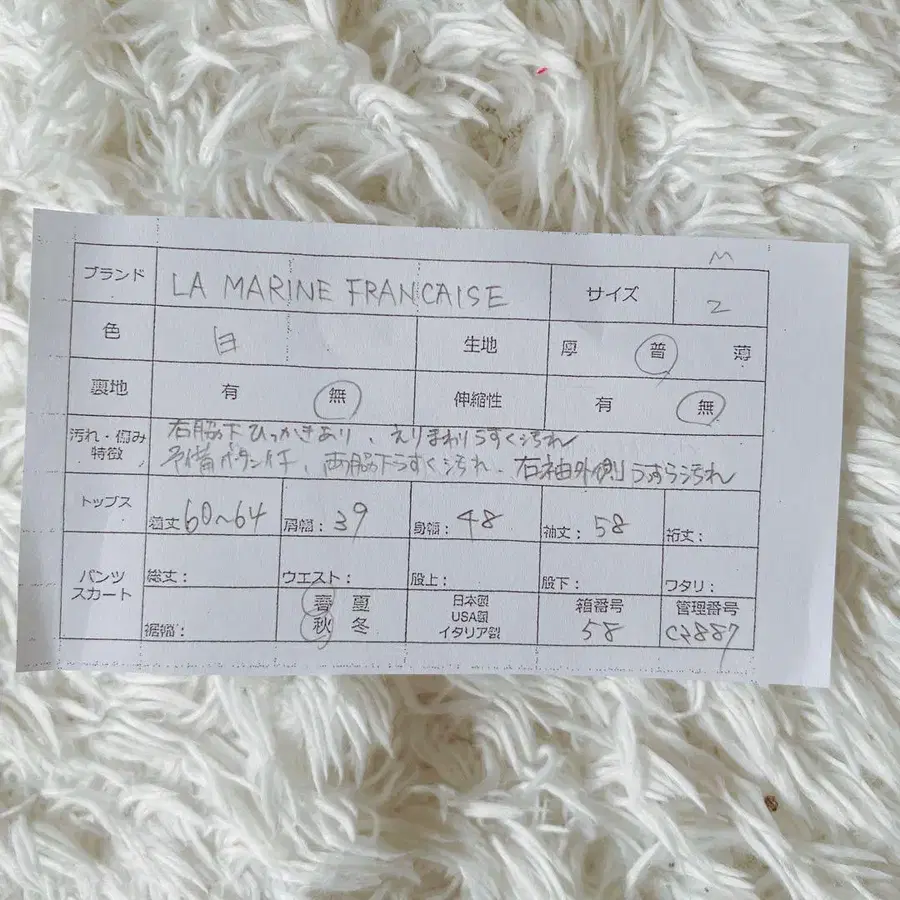 M
ブランド LA MARINE FRANCAISE サイズ 2
色 白 生地 厚 普 薄
裏地 有 無 伸縮性 有 無
汚れ・傷み 右脇下ひっかきあり、えりまわりうすく汚れ
特徴 予備ボタン付、両脇下うすく汚れ、右袖外側うすら汚れ
トップス 着丈60〜64 肩幅:39 身幅:48 袖丈:58 裄丈:
パンツ
スカート
総丈: ウエスト: 股上: 股下: ワタリ:
裾幅:
春 夏
秋 冬
日本製
USA製
イタリア製
箱番号
58
管理番号